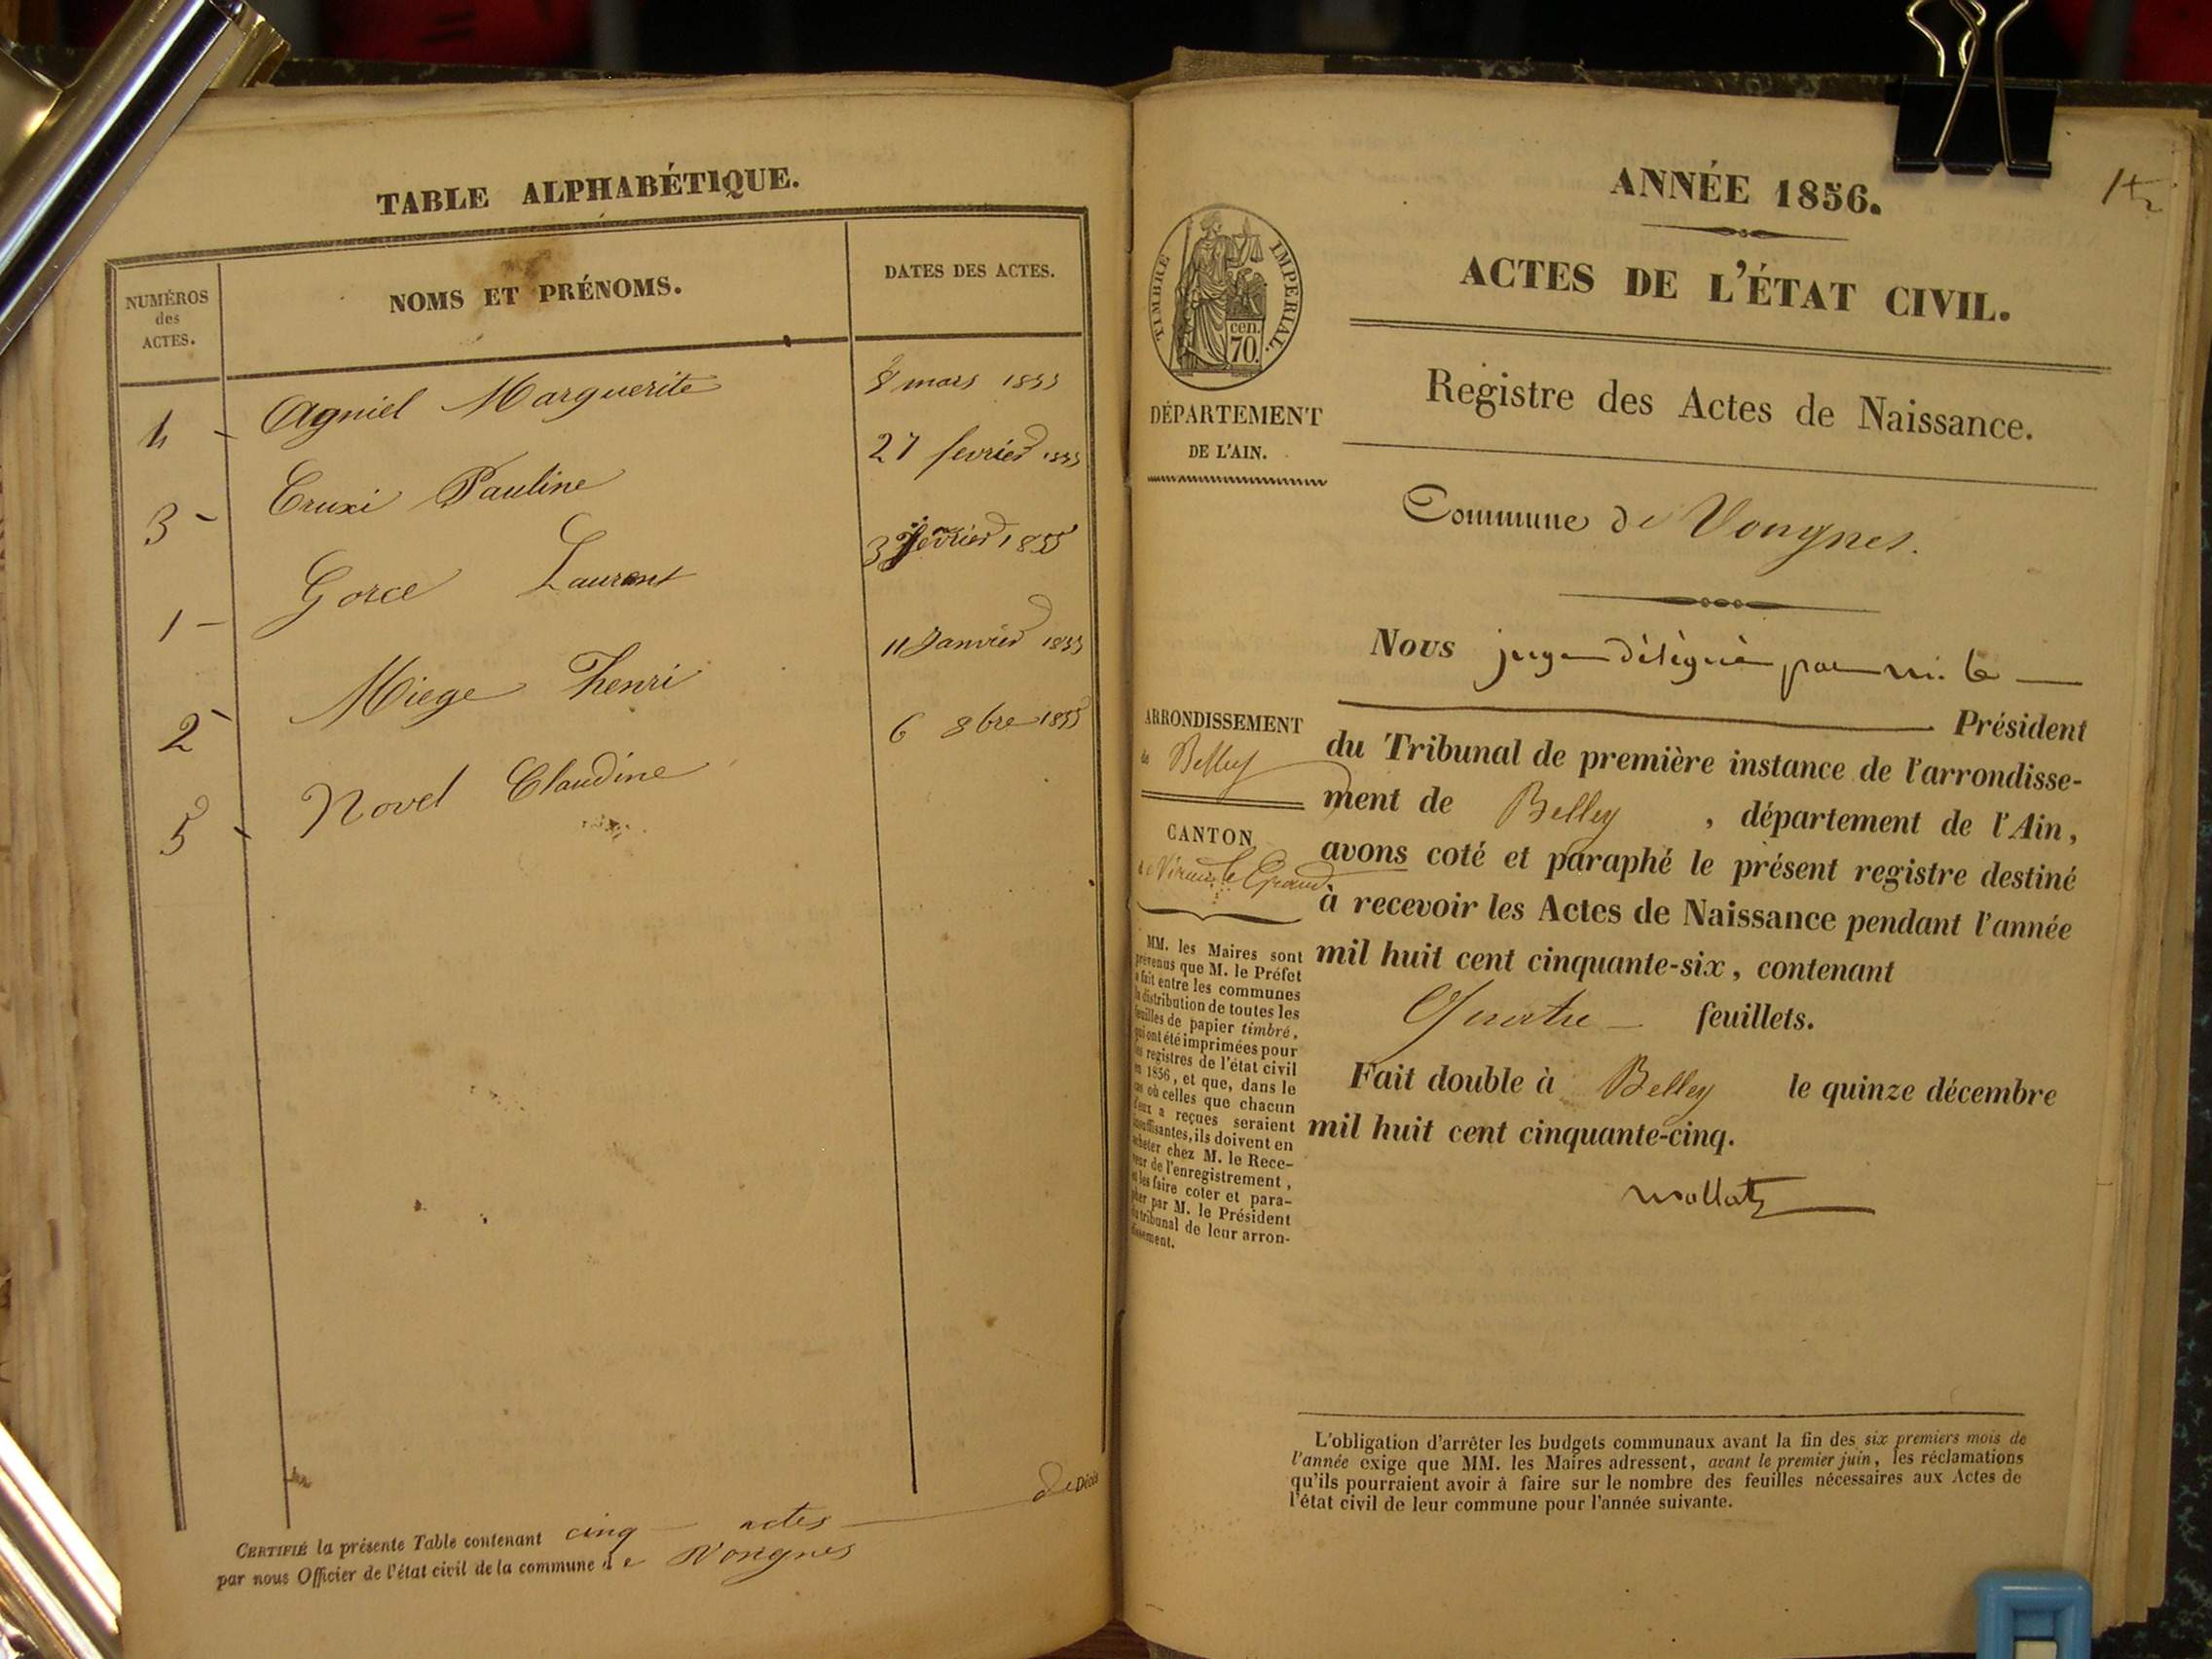 TABLE ALPHABÉTIQUE.
NUMÉROS
des
ACTES.
NOMS ET PRÉNOMS.
DATES DES ACTES.
4 - Agniel Marguerite 8 mars 1855
3 - Cruxi Pauline 27 fevrier 1855
1 - Gorce Laurent 3 fevrier 1855
2 - Miege henri 11 Janvier 1855
5 - Novel Claudine 6 8bre 1855
CERTIFIÉ la présente Table contenant cinq actes de Décès
par nous Officier de l'état civil de la commune de Vongnes
ANNÉE 1856.
ACTES DE L'ÉTAT CIVIL.
TIMBRE IMPERIAL.
cen.
70.
DÉPARTEMENT
DE L'AIN.
Registre des Actes de Naissance.
Commune de Vongnes.
Nous juge délégué par m. le
Président
ARRONDISSEMENT
de Belley
du Tribunal de première instance de l'arrondisse-
ment de Belley, département de l'Ain,
CANTON
de Virieu le Grand
avons coté et paraphé le présent registre destiné
à recevoir les Actes de Naissance pendant l'année
mil huit cent cinquante-six, contenant
Quatre feuillets.
Fait double à Belley le quinze décembre
mil huit cent cinquante-cinq.
mollat
MM. les Maires sont
prévenus que M. le Préfet
a fait entre les communes
la distribution de toutes les
feuilles de papier timbré,
qui ont été imprimées pour
les registres de l'état civil
en 1856, et que, dans le
cas où celles que chacun
d'eux a reçues seraient
insuffisantes, ils doivent en
acheter chez M. le Rece-
veur de l'enregistrement,
et les faire coter et para-
pher par M. le Président
du tribunal de leur arron-
dissement.
L'obligation d'arrêter les budgets communaux avant la fin des six premiers mois de
l'année exige que MM. les Maires adressent, avant le premier juin, les réclamations
qu'ils pourraient avoir à faire sur le nombre des feuilles nécessaires aux Actes de
l'état civil de leur commune pour l'année suivante.